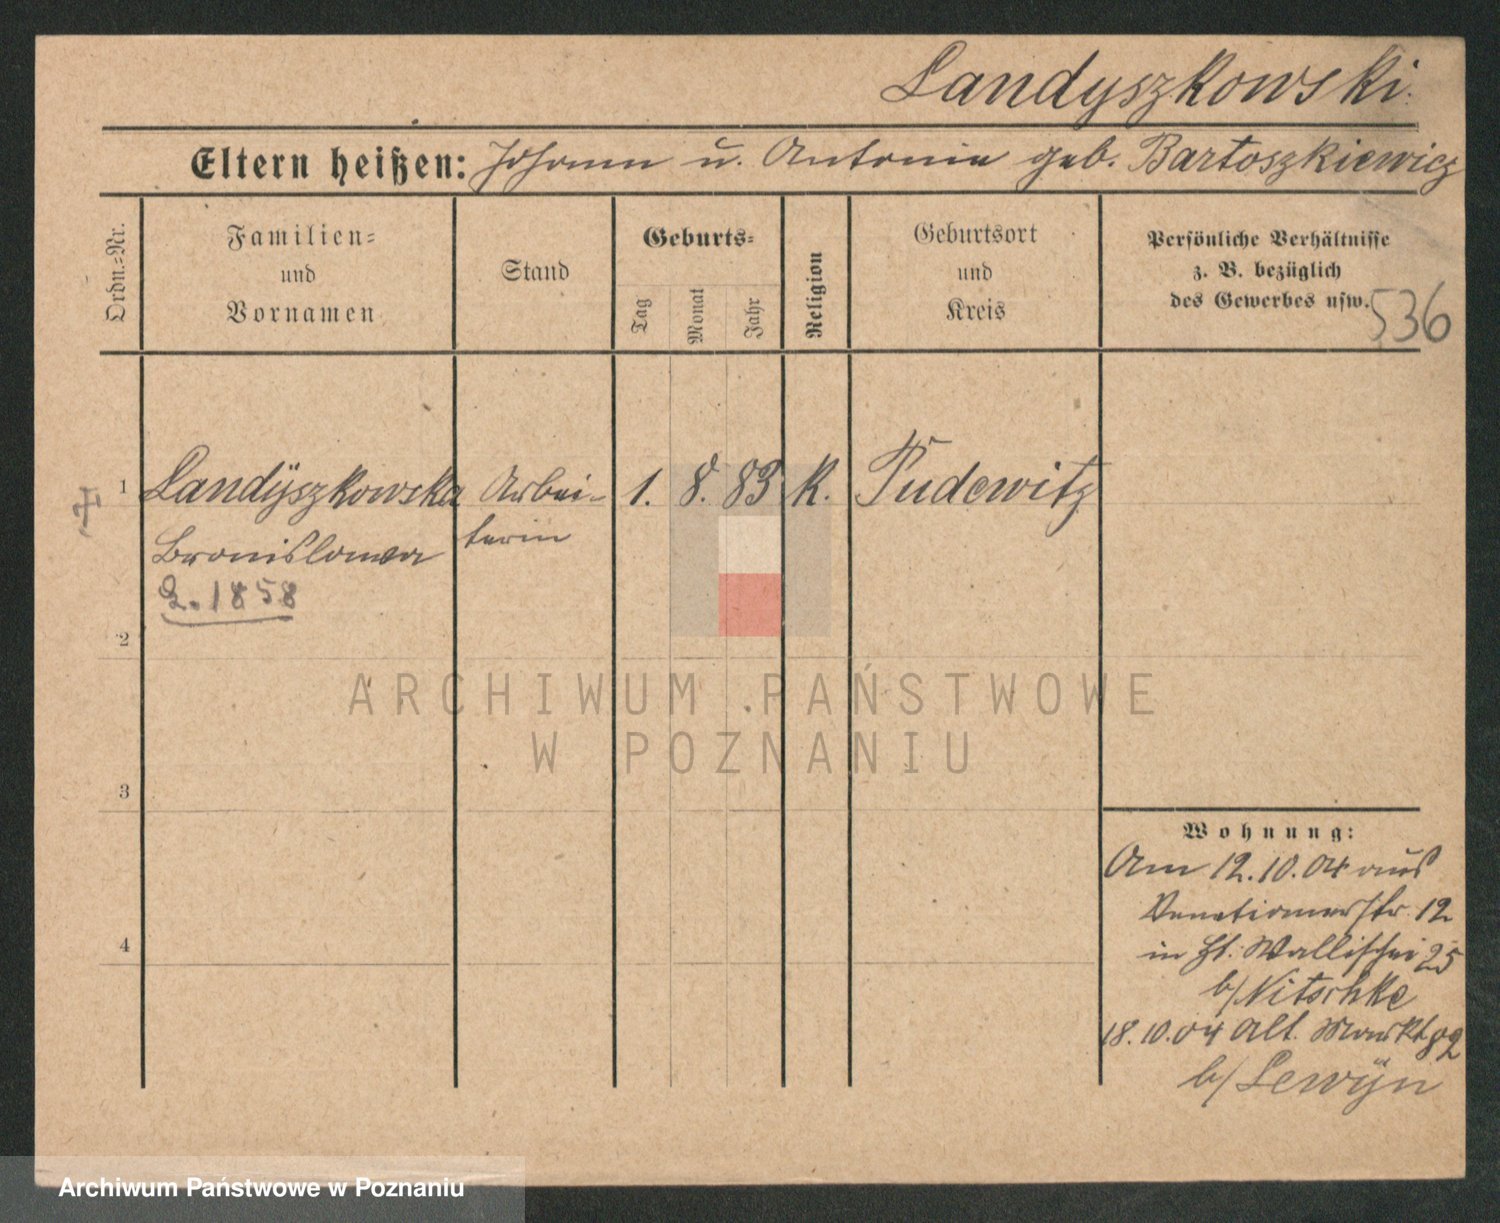 Landyszkowski.
Eltern heißen: Johann u. Antonie geb. Bartoszkiewicz
Ordn.-Nr.
Familien-
und
Vornamen
Stand
Geburts-
Tag
Monat
Jahr
Religion
Geburtsort
und
Kreis
Persönliche Verhältnisse
z. B. bezüglich
des Gewerbes usw.
536
1 Landÿszkowska Arbei- 1. 8. 83 K. Pudewitz
Bronislawa terin
1858
2
3
4
Wohnung:
Am 12.10.04 aus
12
in Wallischei 25
b/ Nitschke
18.10.04 Alt. Markt 82
b/ Lewÿn
ARCHIWUM PAŃSTWOWE
W POZNANIU
Archiwum Państwowe w Poznaniu